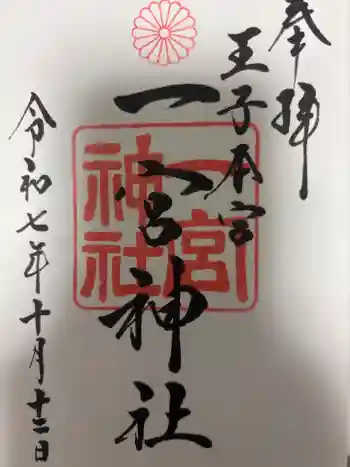 奉拝
王子本宮
一宮神社
一宮
神社
令和七年十月十二日